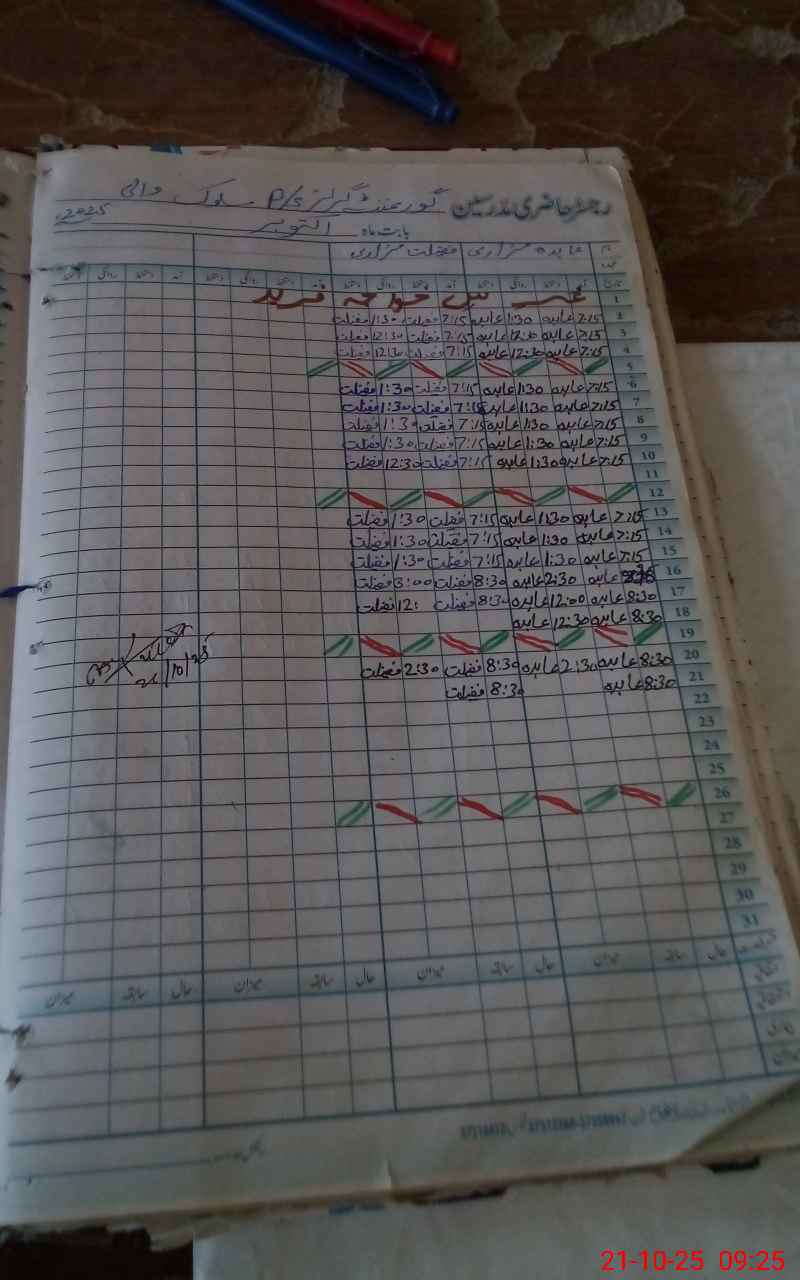 رجسٹر حاضری مدرسین گورنمنٹ گرلز P/S سلوک والی
بابت ماہ اکتوبر 2025ء
نام عابدہ مزاری فضیلت مزاری
تاریخ آمد دستخط روانگی دستخط آمد دستخط روانگی دستخط آمد دستخط روانگی دستخط آمد دستخط روانگی دستخط
1 عرس خواجہ فرید
2 7:15 عابدہ 1:30 عابدہ 7:15 فضیلت 1:30 فضیلت
3 7:15 عابدہ 12:30 عابدہ 7:15 فضیلت 12:30 فضیلت
4 7:15 عابدہ 12:30 عابدہ 7:15 فضیلت 12:30 فضیلت
5
6 7:15 عابدہ 1:30 عابدہ 7:15 فضیلت 1:30 فضیلت
7 7:15 عابدہ 1:30 عابدہ 7:15 فضیلت 1:30 فضیلت
8 7:15 عابدہ 1:30 عابدہ 7:15 فضیلت 1:30 فضیلت
9 7:15 عابدہ 1:30 عابدہ 7:15 فضیلت 1:30 فضیلت
10 7:15 عابدہ 1:30 عابدہ 7:15 فضیلت 12:30 فضیلت
11
12
13 7:15 عابدہ 1:30 عابدہ 7:15 فضیلت 1:30 فضیلت
14 7:15 عابدہ 1:30 عابدہ 7:15 فضیلت 1:30 فضیلت
15 7:15 عابدہ 1:30 عابدہ 7:15 فضیلت 1:30 فضیلت
16 عابدہ 2:30 عابدہ 8:30 فضیلت 3:00 فضیلت
17 8:30 عابدہ 12:00 عابدہ 8:30 فضیلت 12: فضیلت
18 8:30 عابدہ 12:30 عابدہ
19
20 8:30 عابدہ 2:30 عابدہ 8:30 فضیلت 2:30 فضیلت
21 8:30 عابدہ 8:30 فضیلت
21/10/25
22
23
24
25
26
27
28
29
30
31
حال سابقہ میزان حال سابقہ میزان حال سابقہ میزان حال سابقہ میزان
اتفاقی
میزان
21-10-25 09:25